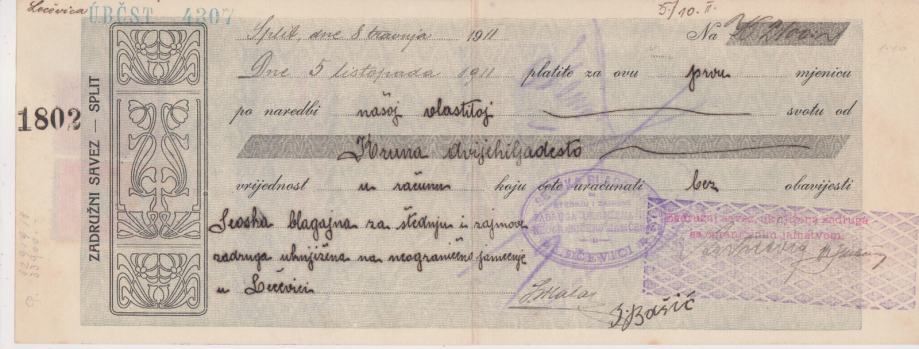 Lećevica ÚBČST 4307 5/10. II.
Split, dne 8 travnja 1911 Na K 2100
Dne 5 listopada 1911 platite za ovu prvu mjenicu
1802
po naredbi našoj vlastitoj svotu od
ZADRUŽNI SAVEZ — SPLIT
Kruna dvijehiljadesto
vrijednost u računu koju ćete uračunati bez obavijesti
Seoska blagajna za štednju i zajmove
zadruga uknjižena na neograničeno jamčenje
u Lećevici
SEOSKA BLAGAJNA
LEĆEVICI
Zadružni savez, uknjižena zadruga
sa ograničenim jamstvom.
J. Bašić